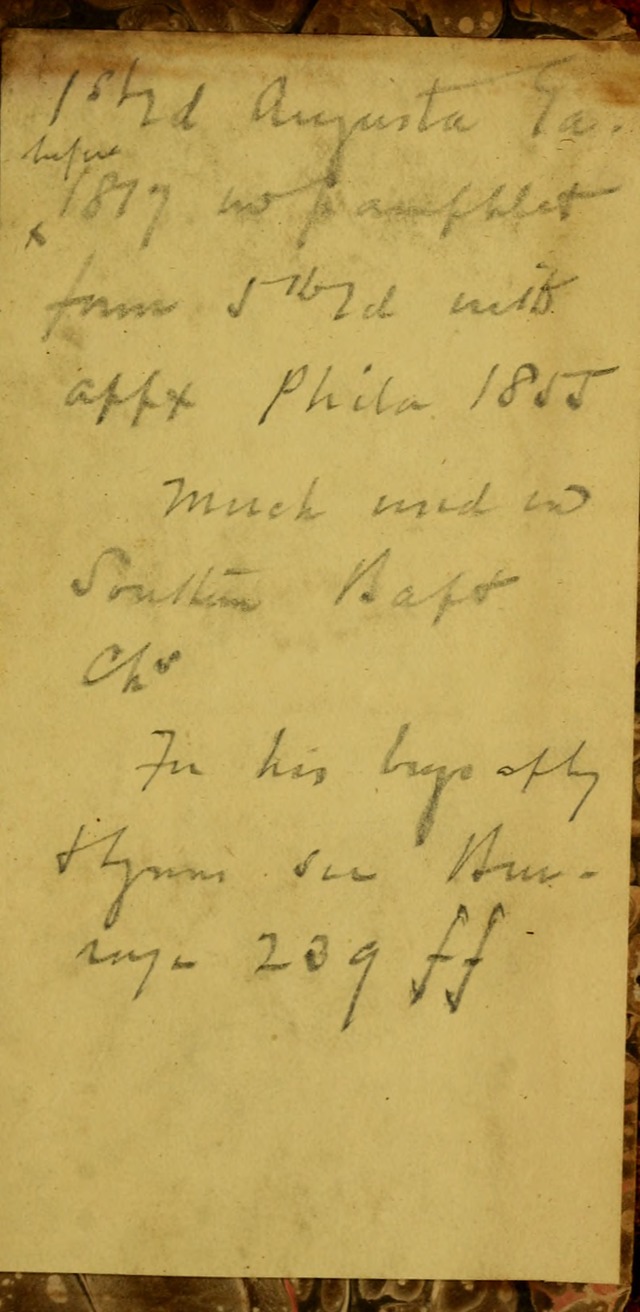 1st Ed Augusta Ga.
before
x 1819 in pamphlet
form 5th Ed with
appx Phila 1855
Much used in
Southern Bapt
Chs
For his biog of by
Hymns see Bur-
rage 239 ff